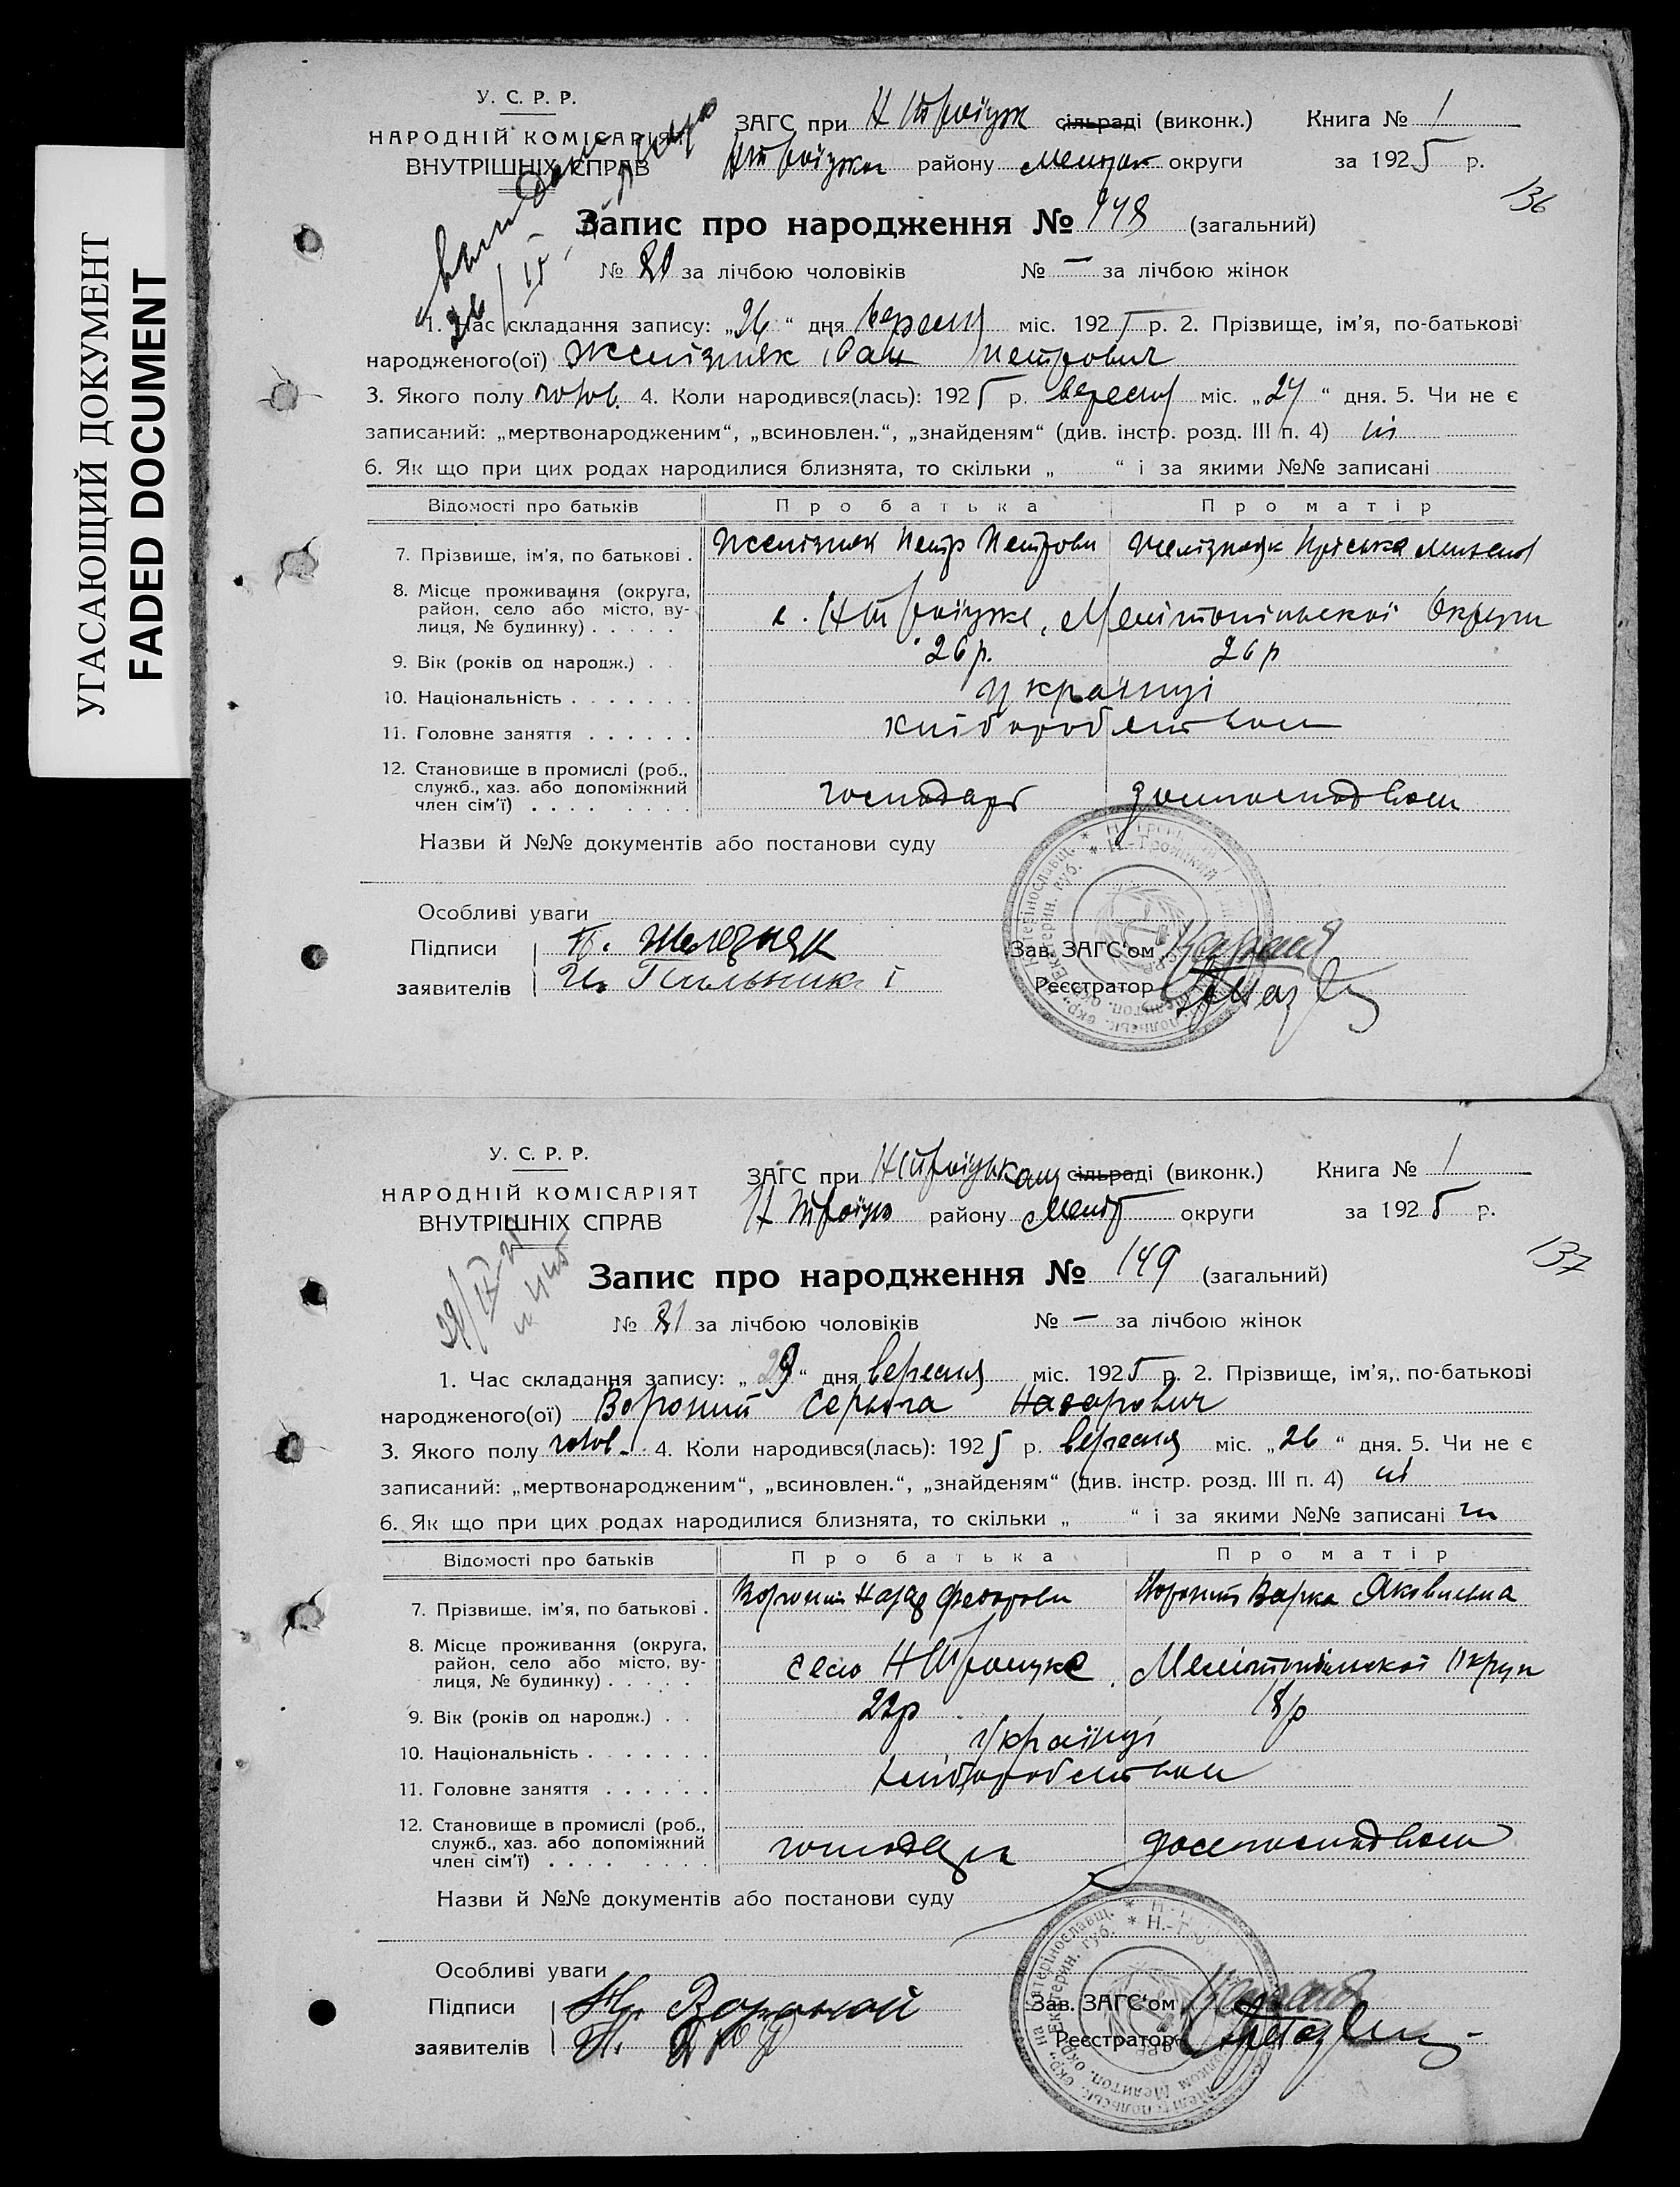 УГАСАЮЩИЙ ДОКУМЕНТ
FADED DOCUMENT
У. С. Р. Р.
НАРОДНІЙ КОМІСАРІЯТ
ВНУТРІШНІХ СПРАВ
ЗАГС при Н Троїцк сільраді (виконк.) Книга № 1
району округи за 1925 р.
136
Запис про народження № 148 (загальний)
№ 80 за лічбою чоловіків № — за лічбою жінок
1. Час складання запису: „26“ дня вересня міс. 1925 р. 2. Прізвище, ім'я, по-батькові
народженого(ої) Желізняк Іван Петрович
3. Якого полу чолов. 4. Коли народився(лась): 1925 р. вересня міс. „24“ дня. 5. Чи не є
записаний: „мертвонародженим“, „всиновлен.“, „знайденям“ (див. інстр. розд. III п. 4) ні
6. Як що при цих родах народилися близнята, то скільки „ “ і за якими №№ записані
Відомості про батьків Про батька Про матір
7. Прізвище, ім'я, по батькові . Желізняк Петр Петрови Желізняк Пріська
8. Місце проживання (округа,
район, село або місто, ву-
лиця, № будинку) . . . . . с. Н Троїцке, Мелітопільскої Округи
9. Вік (років од народж.) . . 26 р. 26 р
10. Національність . . . . . . . українці
11. Головне заняття . . . . . . хліборобством
12. Становище в промислі (роб.,
служб., хаз. або допоміжний
член сім'ї) . . . . господарь домогосподвом
Назви й №№ документів або постанови суду
Особливі уваги
Підписи П. Железняк
заявителів
Зав. ЗАГС'ом
Реєстратор
У. С. Р. Р.
НАРОДНІЙ КОМІСАРІЯТ
ВНУТРІШНІХ СПРАВ
ЗАГС при Н Троїцьком сільраді (виконк.) Книга № 1
Н Троїцк району Меліт округи за 1925 р.
137
Запис про народження № 149 (загальний)
№ 81 за лічбою чоловіків № — за лічбою жінок
1. Час складання запису: „29“ дня вересня міс. 1925 р. 2. Прізвище, ім'я, по-батькові
народженого(ої) Вороний Серьога Назарович
3. Якого полу чолов. 4. Коли народився(лась): 1925 р. вересня міс. „26“ дня. 5. Чи не є
записаний: „мертвонародженим“, „всиновлен.“, „знайденям“ (див. інстр. розд. III п. 4) ні
6. Як що при цих родах народилися близнята, то скільки „ “ і за якими №№ записані ні
Відомості про батьків Про батька Про матір
7. Прізвище, ім'я, по батькові . Вороний Назар Федорови Вороний Варка Яковлевна
8. Місце проживання (округа,
район, село або місто, ву-
лиця, № будинку) . . . . . село Н Троицке, Мелітопільскої Округи
9. Вік (років од народж.) . . 22р 18р
10. Національність . . . . . . . Українці
11. Головне заняття . . . . . . хліборобством
12. Становище в промислі (роб.,
служб., хаз. або допоміжний
член сім'ї) . . . . господарь домогосподвом
Назви й №№ документів або постанови суду
Особливі уваги
Підписи Вороной
заявителів
Зав. ЗАГС'ом
Реєстратор